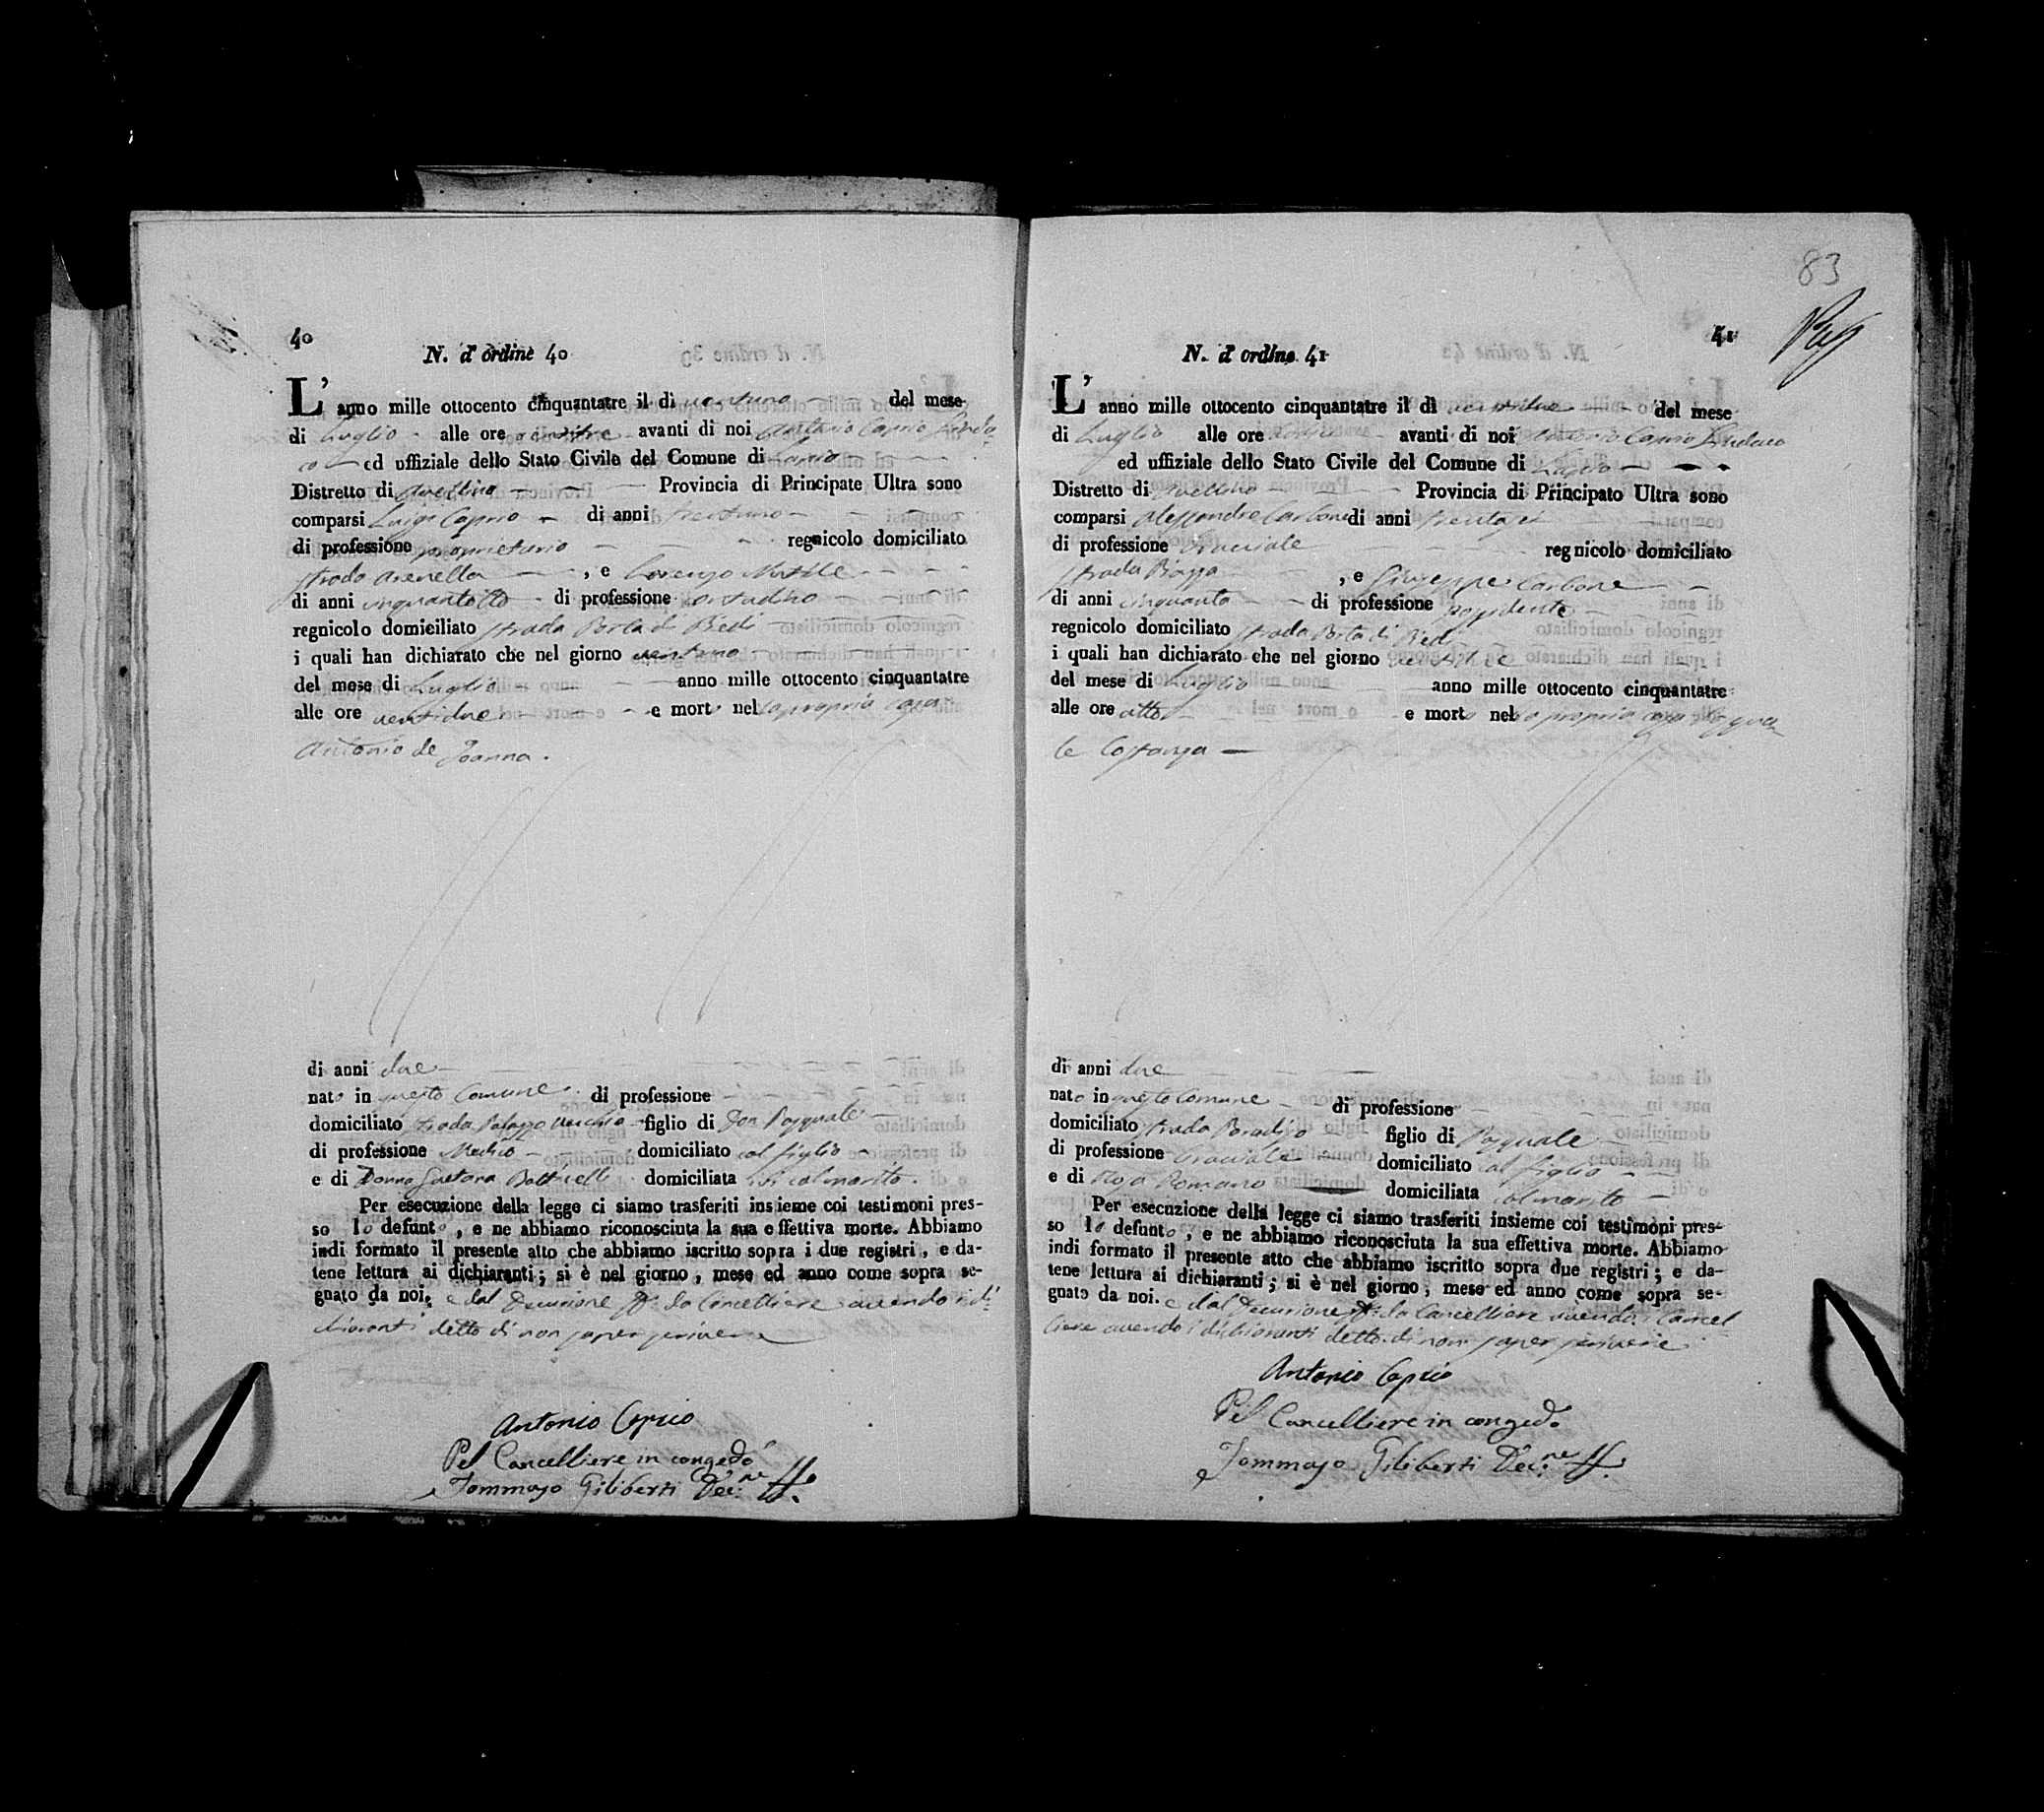 40
N. d' ordine 40
L' anno mille ottocento cinquantatre il dì ventuno del mese
di Luglio alle ore ventitre avanti di noi Antonio Caprio Sinda-
co ed uffiziale dello Stato Civile del Comune di Lapio
Distretto di Avellino Provincia di Principate Ultra sono
comparsi Luigi Caprio di anni trentuno
di professione proprietario regnicolo domiciliato
strada Arenella , e Lorenzo
di anni cinquantotto di professione contadino
regnicolo domiciliato strada Porta di Piedi
i quali han dichiarato che nel giorno ventuno
del mese di Luglio anno mille ottocento cinquantatre
alle ore ventidue e morto nella propria casa
Antonio de Joanna.
di anni due
nato in questo Comune di professione
domiciliato strada Palazzo Vecchio figlio di Don Pasquale
di professione Medico domiciliato col figlio
e di Donna Gaetana domiciliata ivi col marito.
Per esecuzione della legge ci siamo trasferiti insieme coi testimoni pres-
so lo defunto, e ne abbiamo riconosciuta la sua effettiva morte. Abbiamo
indi formato il presente atto che abbiamo iscritto sopra i due registri, e da-
tene lettura ai dichiaranti; si è nel giorno, mese ed anno come sopra se-
gnato da noi, e dal Decurione ff. da Cancelliere avendo i di-
chiaranti detto di non saper scrivere
Antonio Caprio
Pel Cancelliere in congedo
Tommaso Giliberti Dec.ne ff.
83
41
N. d' ordine 41
L' anno mille ottocento cinquantatre il dì ventidue del mese
di Luglio alle ore avanti di noi Antonio Caprio Sindaco
ed uffiziale dello Stato Civile del Comune di Lapio
Distretto di Avellino Provincia di Principato Ultra sono
comparsi Alessandro Carbone di anni trentasei
di professione bracciale regnicolo domiciliato
strada Piazza , e Giuseppe Carbone
di anni cinquanta di professione possidente
regnicolo domiciliato strada Porta di Piedi
i quali han dichiarato che nel giorno ventidue
del mese di Luglio anno mille ottocento cinquantatre
alle ore otto e morto nella propria casa Pasqua
le Costanza
di anni due
nato in questo Comune di professione
domiciliato strada Paradiso figlio di Pasquale
di professione bracciale domiciliato col figlio
e di Rosa Romano domiciliata col marito
Per esecuzione della legge ci siamo trasferiti insieme coi testimoni pres-
so lo defunto, e ne abbiamo riconosciuta la sua effettiva morte. Abbiamo
indi formato il presente atto che abbiamo iscritto sopra due registri; e da-
tene lettura ai dichiaranti; si è nel giorno, mese ed anno come sopra se-
gnato da noi. e dal Decurione ff. da Cancelliere avendo i Cancel
liere avendo i dichioranti detto di non saper scrivere
Antonio Caprio
Pel Cancelliere in congedo
Tommaso Giliberti Dec.ne ff.